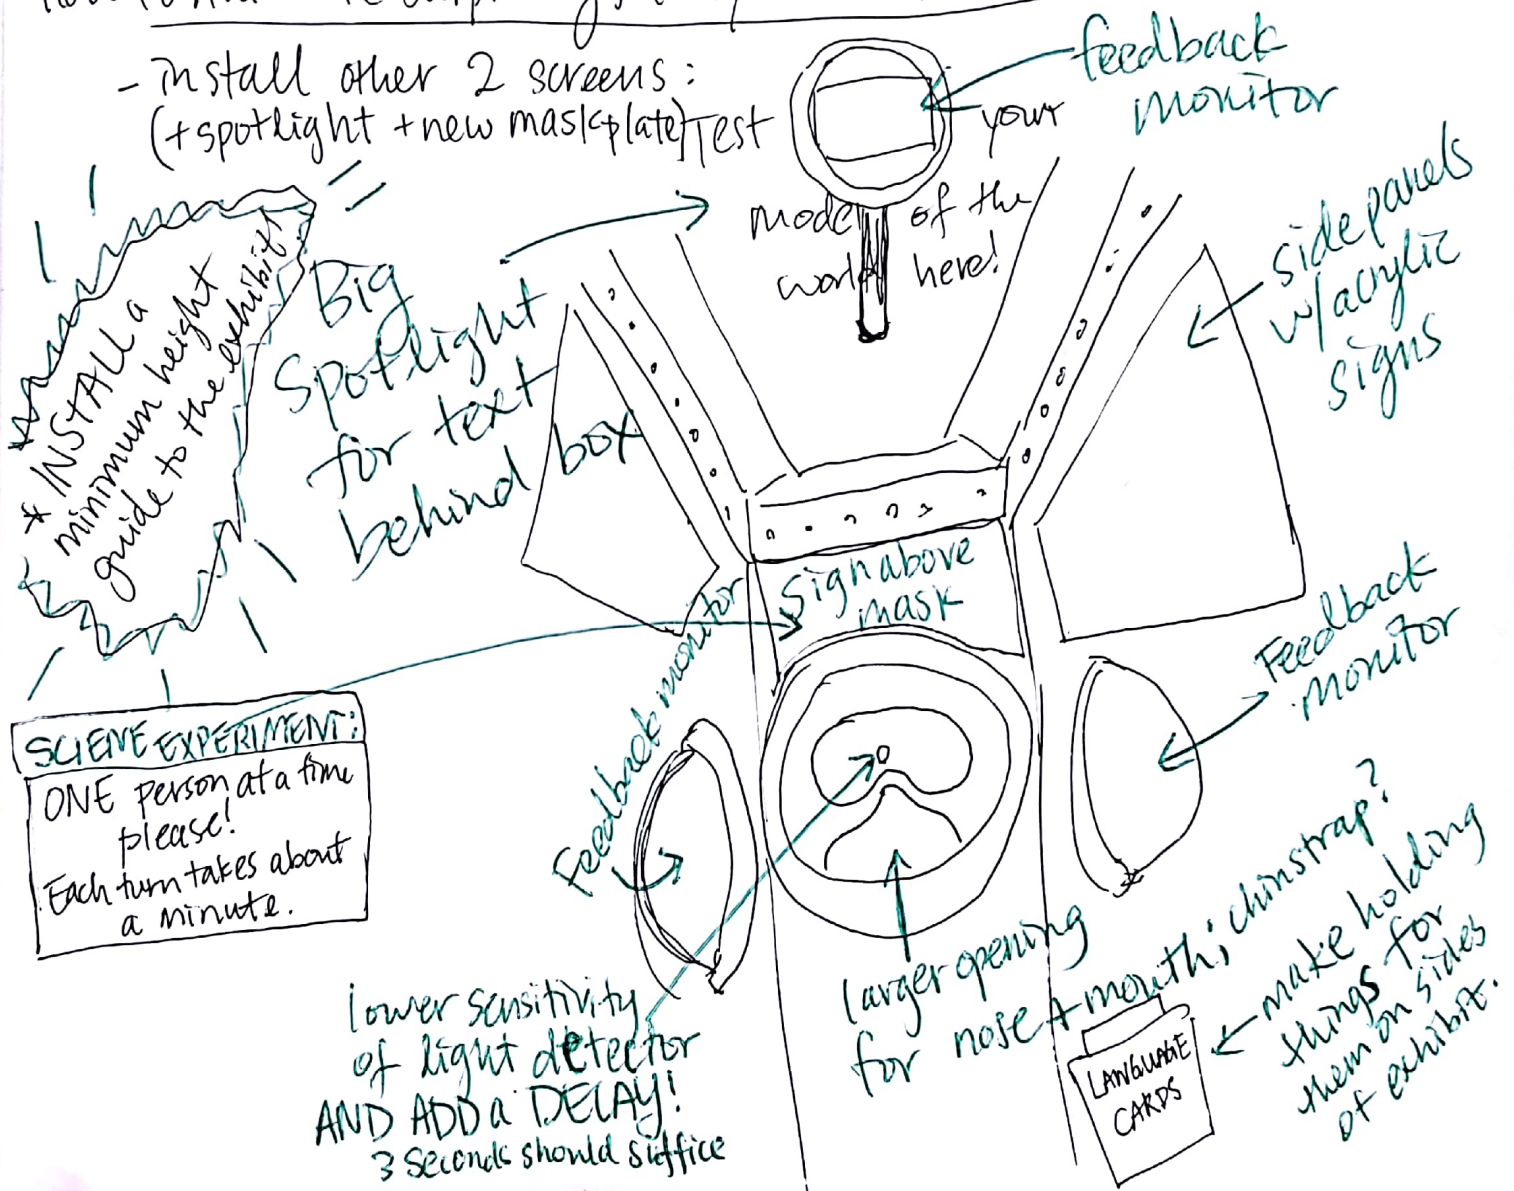 - install other 2 screens:
(+spotlight +new maskplate)
Test
your
model of the
world here!
feedback
monitor
side panels
w/acrylic
signs
* INSTALL a
minimum height
guide to the exhibit!
Big
Spotlight
for text
behind box
sign above
mask
Feedback monitor
Feedback
monitor
SCIENE EXPERIMENT:
ONE person at a time
please!
Each turn takes about
a minute.
lower sensitivity
of light detector
AND ADD a DELAY!
3 seconds should suffice
larger opening
for nose + mouth; chinstrap?
make holding
things for
them on sides
of exhibit.
LANGUAGE
CARDS